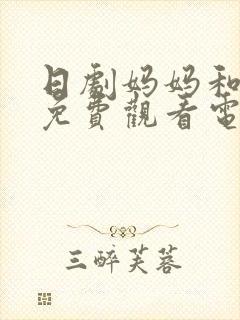 日劇妈妈和
免費觀看電
三醉芙蓉